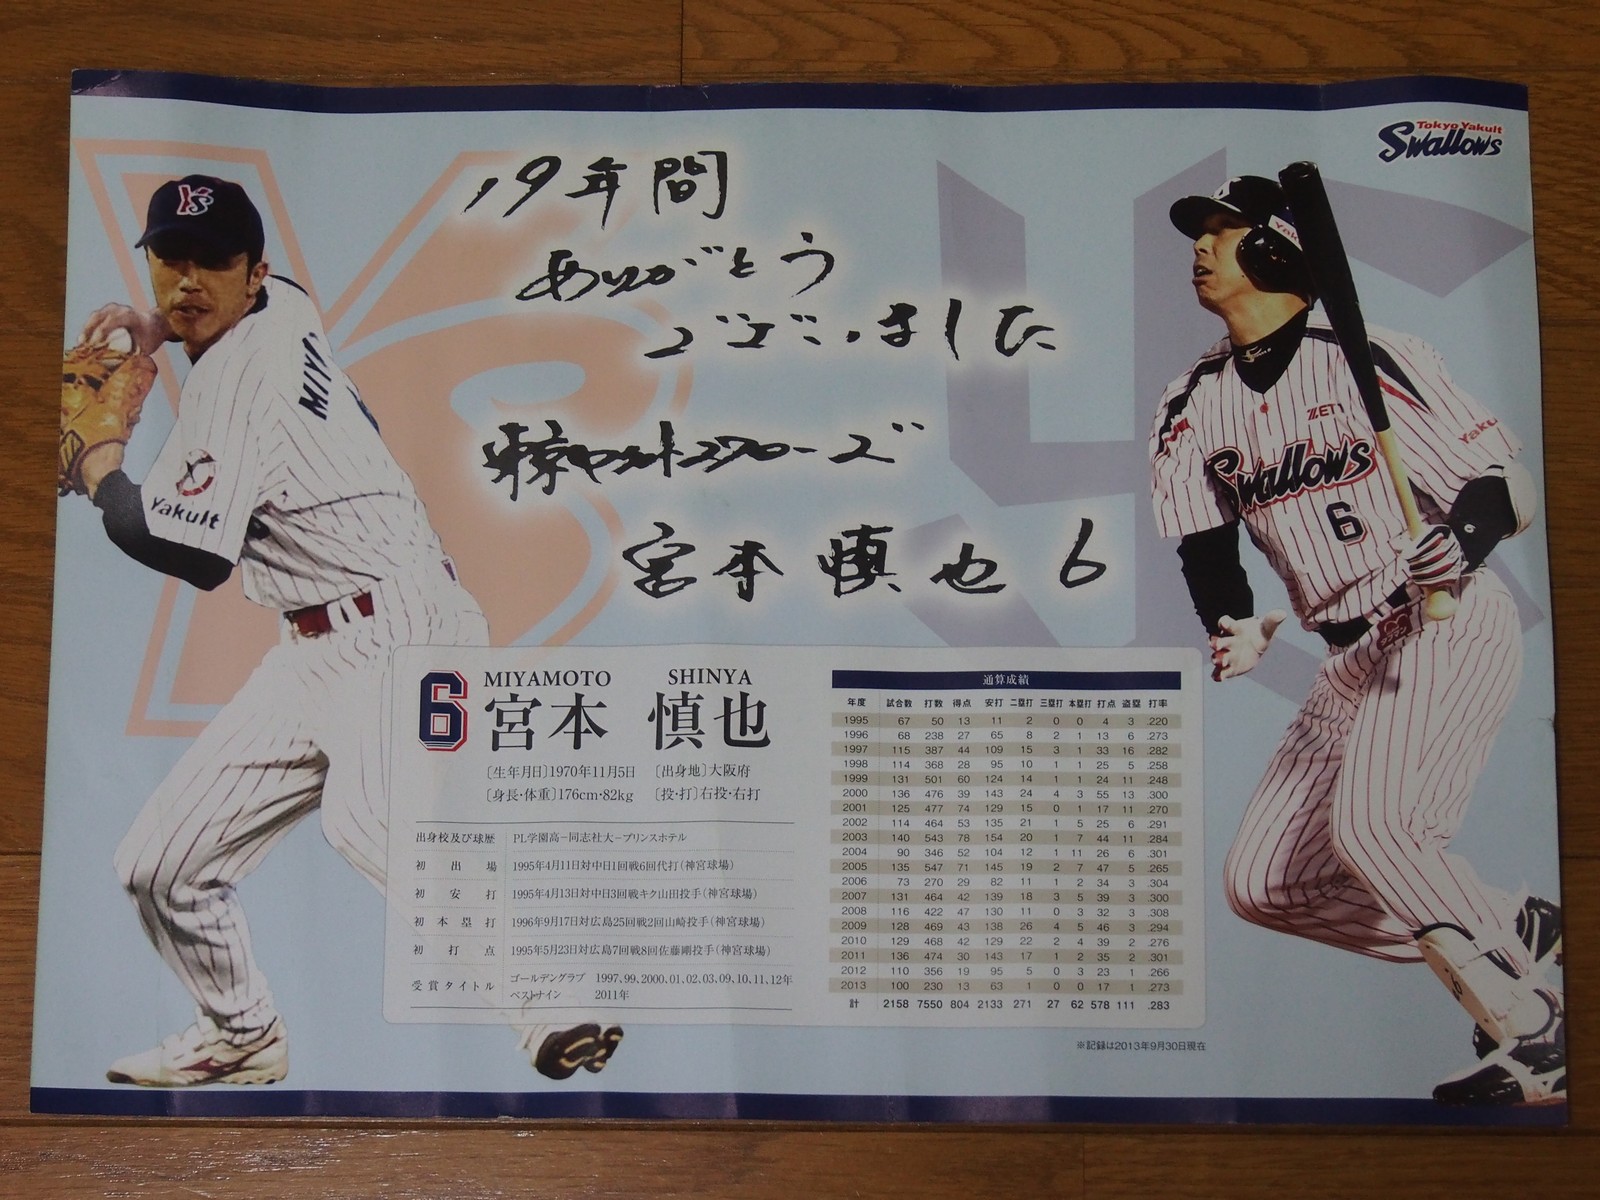 Tokyo Yakult
Swallows
19年間
ありがとう
ございました
東京ヤクルトスワローズ
宮本慎也 6
Ys
MIYA
Yakult
Yaku
ZETT
Yaku
Swallows
6
6
MIYAMOTO SHINYA
宮本 慎也
〔生年月日〕1970年11月5日 〔出身地〕大阪府
〔身長・体重〕176cm・82kg 〔投・打〕右投・右打
出身校及び球歴 PL学園高−同志社大−プリンスホテル
初出場 1995年4月11日対中日1回戦6回代打(神宮球場)
初安打 1995年4月13日対中日3回戦キク山田投手(神宮球場)
初本塁打 1996年9月17日対広島25回戦2回山崎投手(神宮球場)
初打点 1995年5月23日対広島7回戦8回佐藤剛投手(神宮球場)
受賞タイトル ゴールデングラブ 1997、99、2000、01、02、03、09、10、11、12年
ベストナイン 2011年
通算成績
年度 試合数 打数 得点 安打 二塁打 三塁打 本塁打 打点 盗塁 打率
1995 67 50 13 11 2 0 0 4 3 .220
1996 68 238 27 65 8 2 1 13 6 .273
1997 115 387 44 109 15 3 1 33 16 .282
1998 114 368 28 95 10 1 1 25 5 .258
1999 131 501 60 124 14 1 1 24 11 .248
2000 136 476 39 143 24 4 3 55 13 .300
2001 125 477 74 129 15 0 1 17 11 .270
2002 114 464 53 135 21 1 5 25 6 .291
2003 140 543 78 154 20 1 7 44 11 .284
2004 90 346 52 104 12 1 11 26 6 .301
2005 135 547 71 145 19 2 7 47 5 .265
2006 73 270 29 82 11 1 2 34 3 .304
2007 131 464 42 139 18 3 5 39 3 .300
2008 116 422 47 130 11 0 3 32 3 .308
2009 128 469 43 138 26 4 5 46 3 .294
2010 129 468 42 129 22 2 4 39 2 .276
2011 136 474 30 143 17 1 2 35 2 .301
2012 110 356 19 95 5 0 3 23 1 .266
2013 100 230 13 63 1 0 0 17 1 .273
計 2158 7550 804 2133 271 27 62 578 111 .283
※記録は2013年9月30日現在